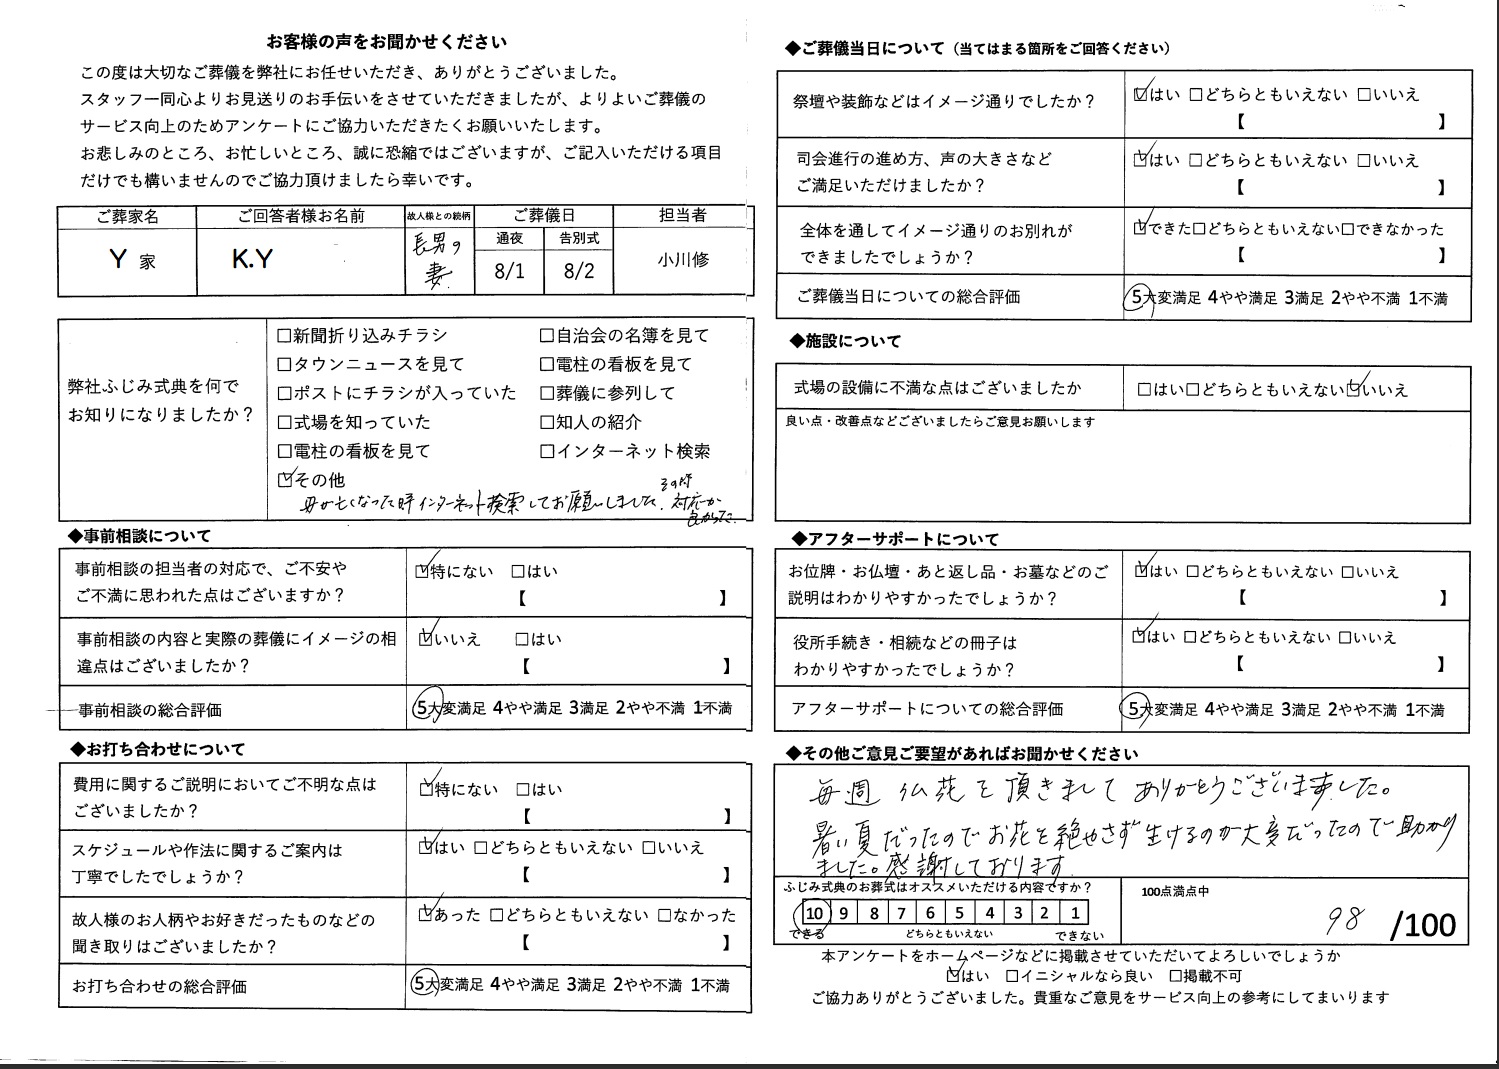 お客様の声をお聞かせください
この度は大切なご葬儀を弊社にお任せいただき、ありがとうございました。
スタッフ一同心よりお見送りのお手伝いをさせていただきましたが、よりよいご葬儀の
サービス向上のためアンケートにご協力いただきたくお願いいたします。
お悲しみのところ、お忙しいところ、誠に恐縮ではございますが、ご記入いただける項目
だけでも構いませんのでご協力頂けましたら幸いです。
ご葬家名 ご回答者様お名前 故人様との続柄 ご葬儀日 担当者
通夜 告別式
Y 家 K.Y 長男の妻 8/1 8/2 小川修
弊社ふじみ式典を何で
お知りになりましたか？
□新聞折り込みチラシ □自治会の名簿を見て
□タウンニュースを見て □電柱の看板を見て
□ポストにチラシが入っていた □葬儀に参列して
□式場を知っていた □知人の紹介
□電柱の看板を見て □インターネット検索
☑その他
母が亡くなった時インターネット検索してお願いしました。その時対応が良かった。
◆事前相談について
事前相談の担当者の対応で、ご不安や
ご不満に思われた点はございますか？
☑特にない □はい
【 】
事前相談の内容と実際の葬儀にイメージの相
違点はございましたか？
☑いいえ □はい
【 】
事前相談の総合評価 5大変満足 4やや満足 3満足 2やや不満 1不満
◆お打ち合わせについて
費用に関するご説明においてご不明な点は
ございましたか？
☑特にない □はい
【 】
スケジュールや作法に関するご案内は
丁寧でしたでしょうか？
☑はい □どちらともいえない □いいえ
【 】
故人様のお人柄やお好きだったものなどの
聞き取りはございましたか？
☑あった □どちらともいえない □なかった
【 】
お打ち合わせの総合評価 5大変満足 4やや満足 3満足 2やや不満 1不満
◆ご葬儀当日について（当てはまる箇所をご回答ください）
祭壇や装飾などはイメージ通りでしたか？
☑はい □どちらともいえない □いいえ
【 】
司会進行の進め方、声の大きさなど
ご満足いただけましたか？
☑はい □どちらともいえない □いいえ
【 】
全体を通してイメージ通りのお別れが
できましたでしょうか？
☑できた□どちらともいえない□できなかった
【 】
ご葬儀当日についての総合評価 5大変満足 4やや満足 3満足 2やや不満 1不満
◆施設について
式場の設備に不満な点はございましたか □はい□どちらともいえない☑いいえ
良い点・改善点などございましたらご意見お願いします
◆アフターサポートについて
お位牌・お仏壇・あと返し品・お墓などのご
説明はわかりやすかったでしょうか？
☑はい □どちらともいえない □いいえ
【 】
役所手続き・相続などの冊子は
わかりやすかったでしょうか？
☑はい □どちらともいえない □いいえ
【 】
アフターサポートについての総合評価 5大変満足 4やや満足 3満足 2やや不満 1不満
◆その他ご意見ご要望があればお聞かせください
毎週 仏花を頂きまして ありがとうございました。
暑い夏だったのでお花を絶やさず生けるのが大変だったので助かり
ました。感謝しております
ふじみ式典のお葬式はオススメいただける内容ですか？
10 9 8 7 6 5 4 3 2 1
できる どちらともいえない できない
100点満点中
98 /100
本アンケートをホームページなどに掲載させていただいてよろしいでしょうか
☑はい □イニシャルなら良い □掲載不可
ご協力ありがとうございました。貴重なご意見をサービス向上の参考にしてまいります